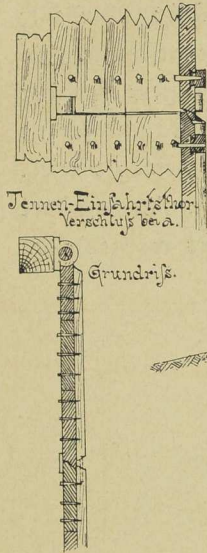 Tennen-Einfahrtsthor
Verschluß bei a.
Grundriß.